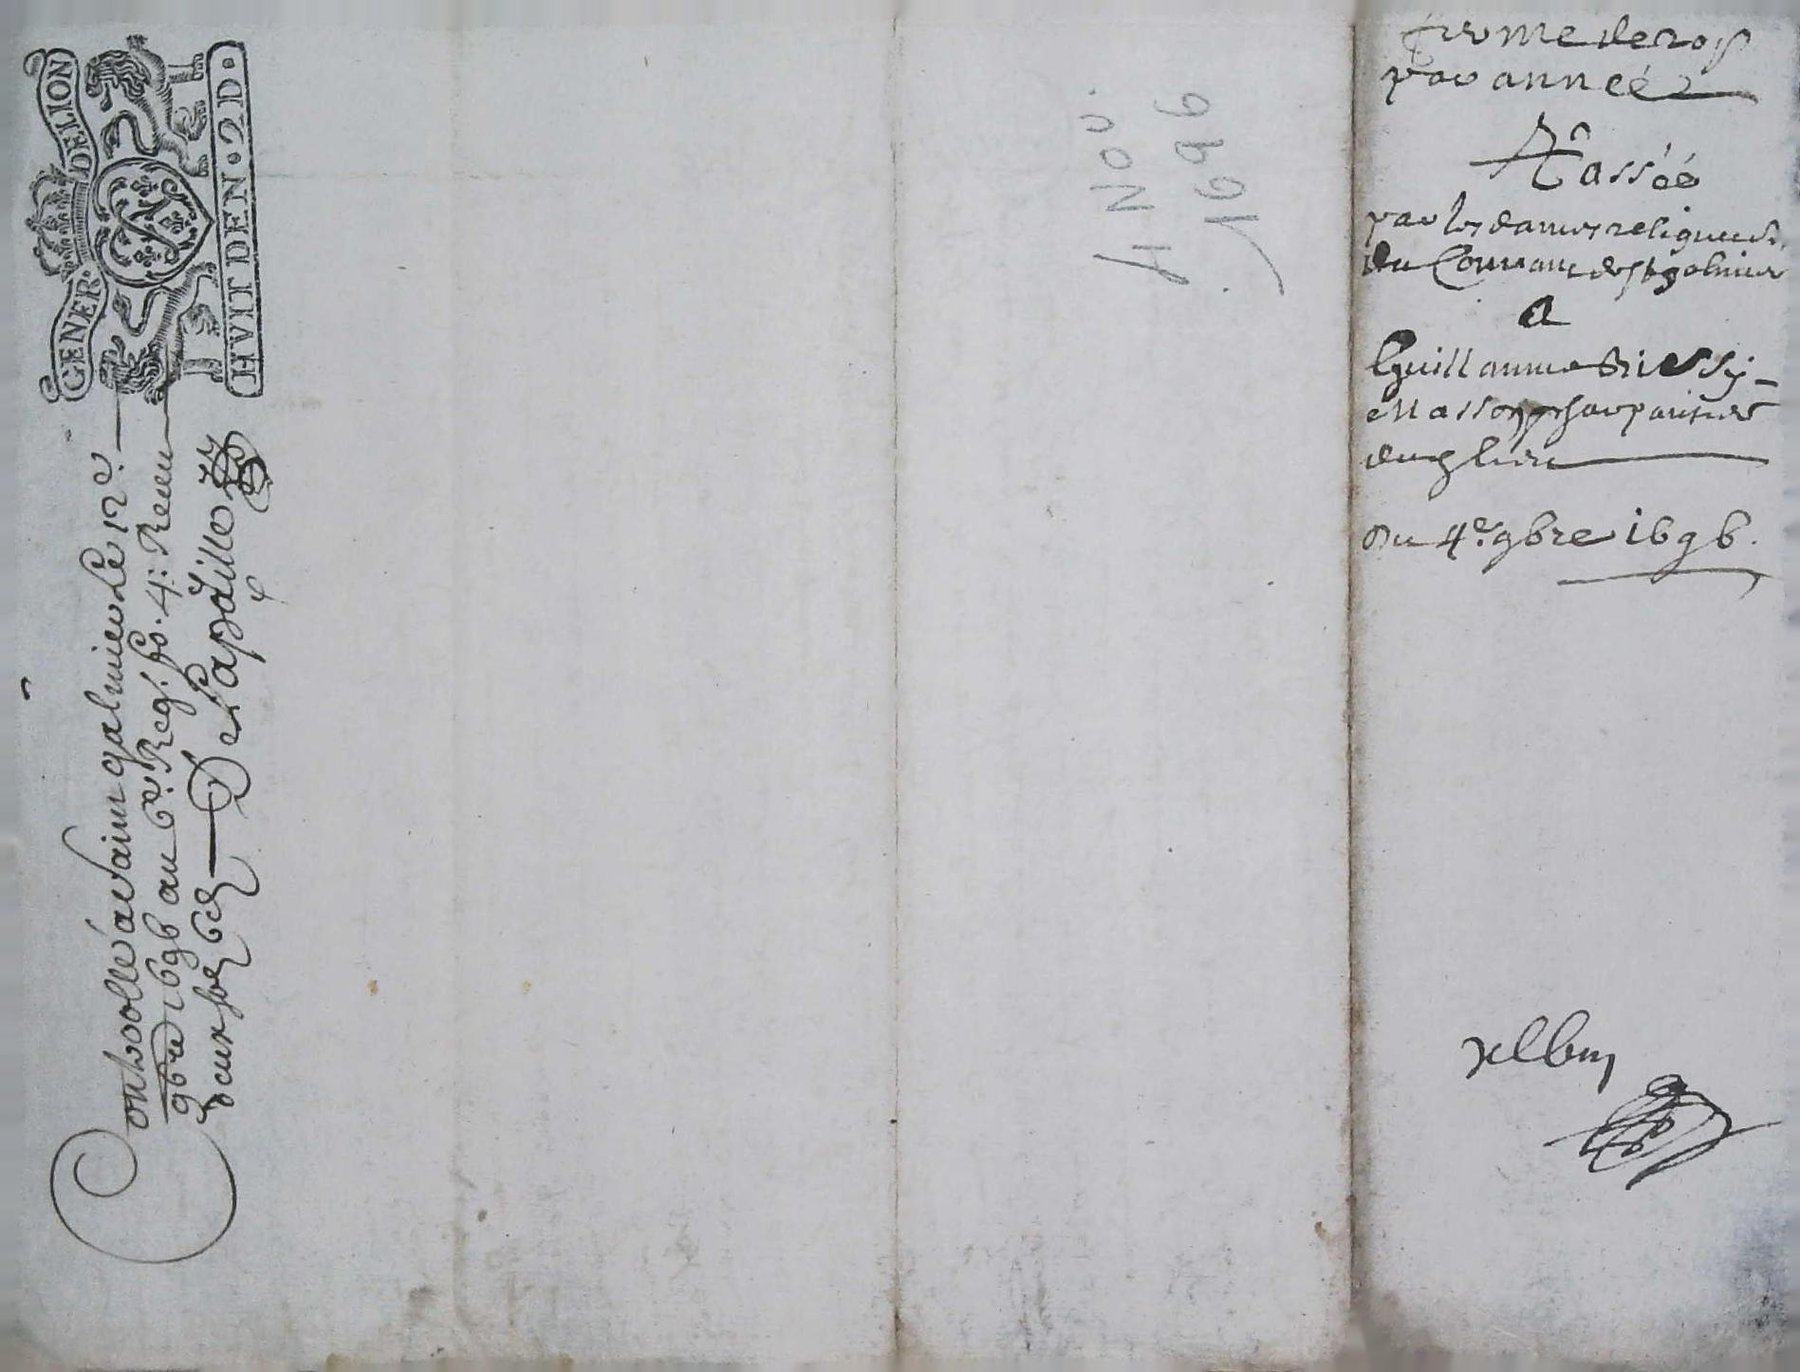 GENER. DE LION
HVIT DEN. 2 D.
Controollé a Saint galmier Le 12e.
9bre 1696 au 6e. Reg. fo. 4: Receu
deux sols 6d DeLapalille
4 NOV.
1696
ferme de 20 ₶
par année
passéé
par les dames religieuses
du Couvant de st galmier
A
Guillaume Briessy
masson charpantier
dud lieu
Du 4e. 9bre 1696.